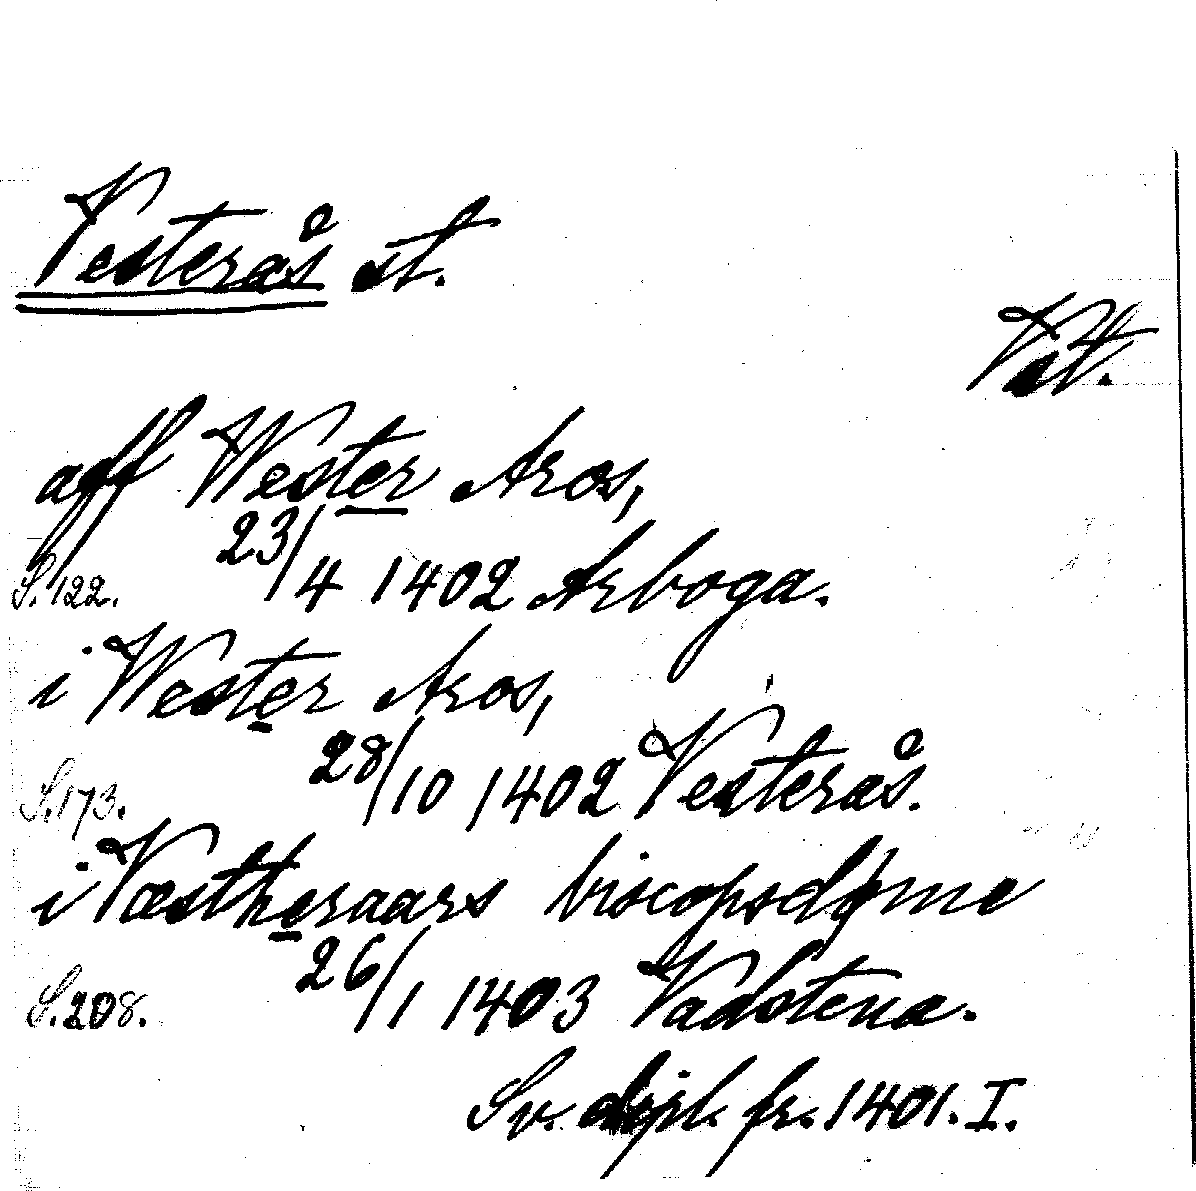 Vesterås st.
Vst.
aff Wester Aros,
S. 122. 23/4 1402 Arboga.
i Wester Aros,
S. 173. 28/10 1402 Vesterås.
i Væstheraars biscopsdøme
S. 208. 26/1 1403 Vadstena.
Sv. dipl. fr. 1401. I.